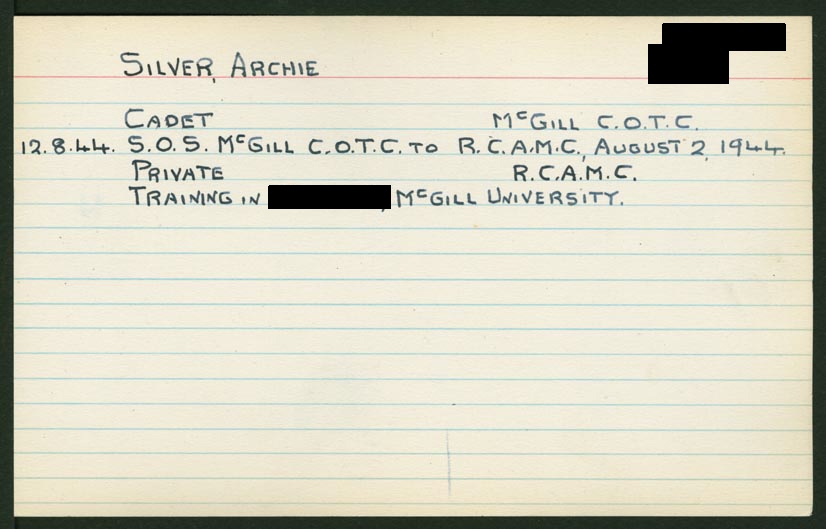 SILVER, ARCHIE
CADET McGILL C.O.T.C.
12.8.44. S.O.S. McGILL C.O.T.C. TO R.C.A.M.C., AUGUST 2, 1944.
PRIVATE R.C.A.M.C.
TRAINING IN , McGILL UNIVERSITY.